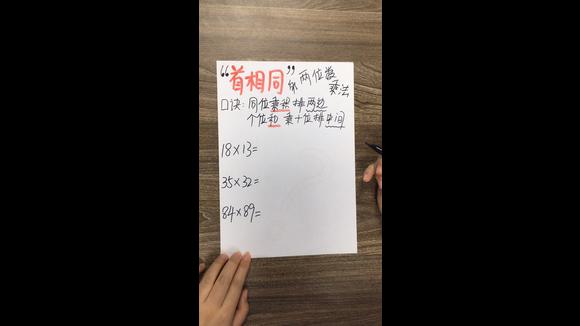 “首相同”的两位数
乘法
口诀：同位乘积排两边
个位和乘十位排中间
18×13=
35×32=
84×89=